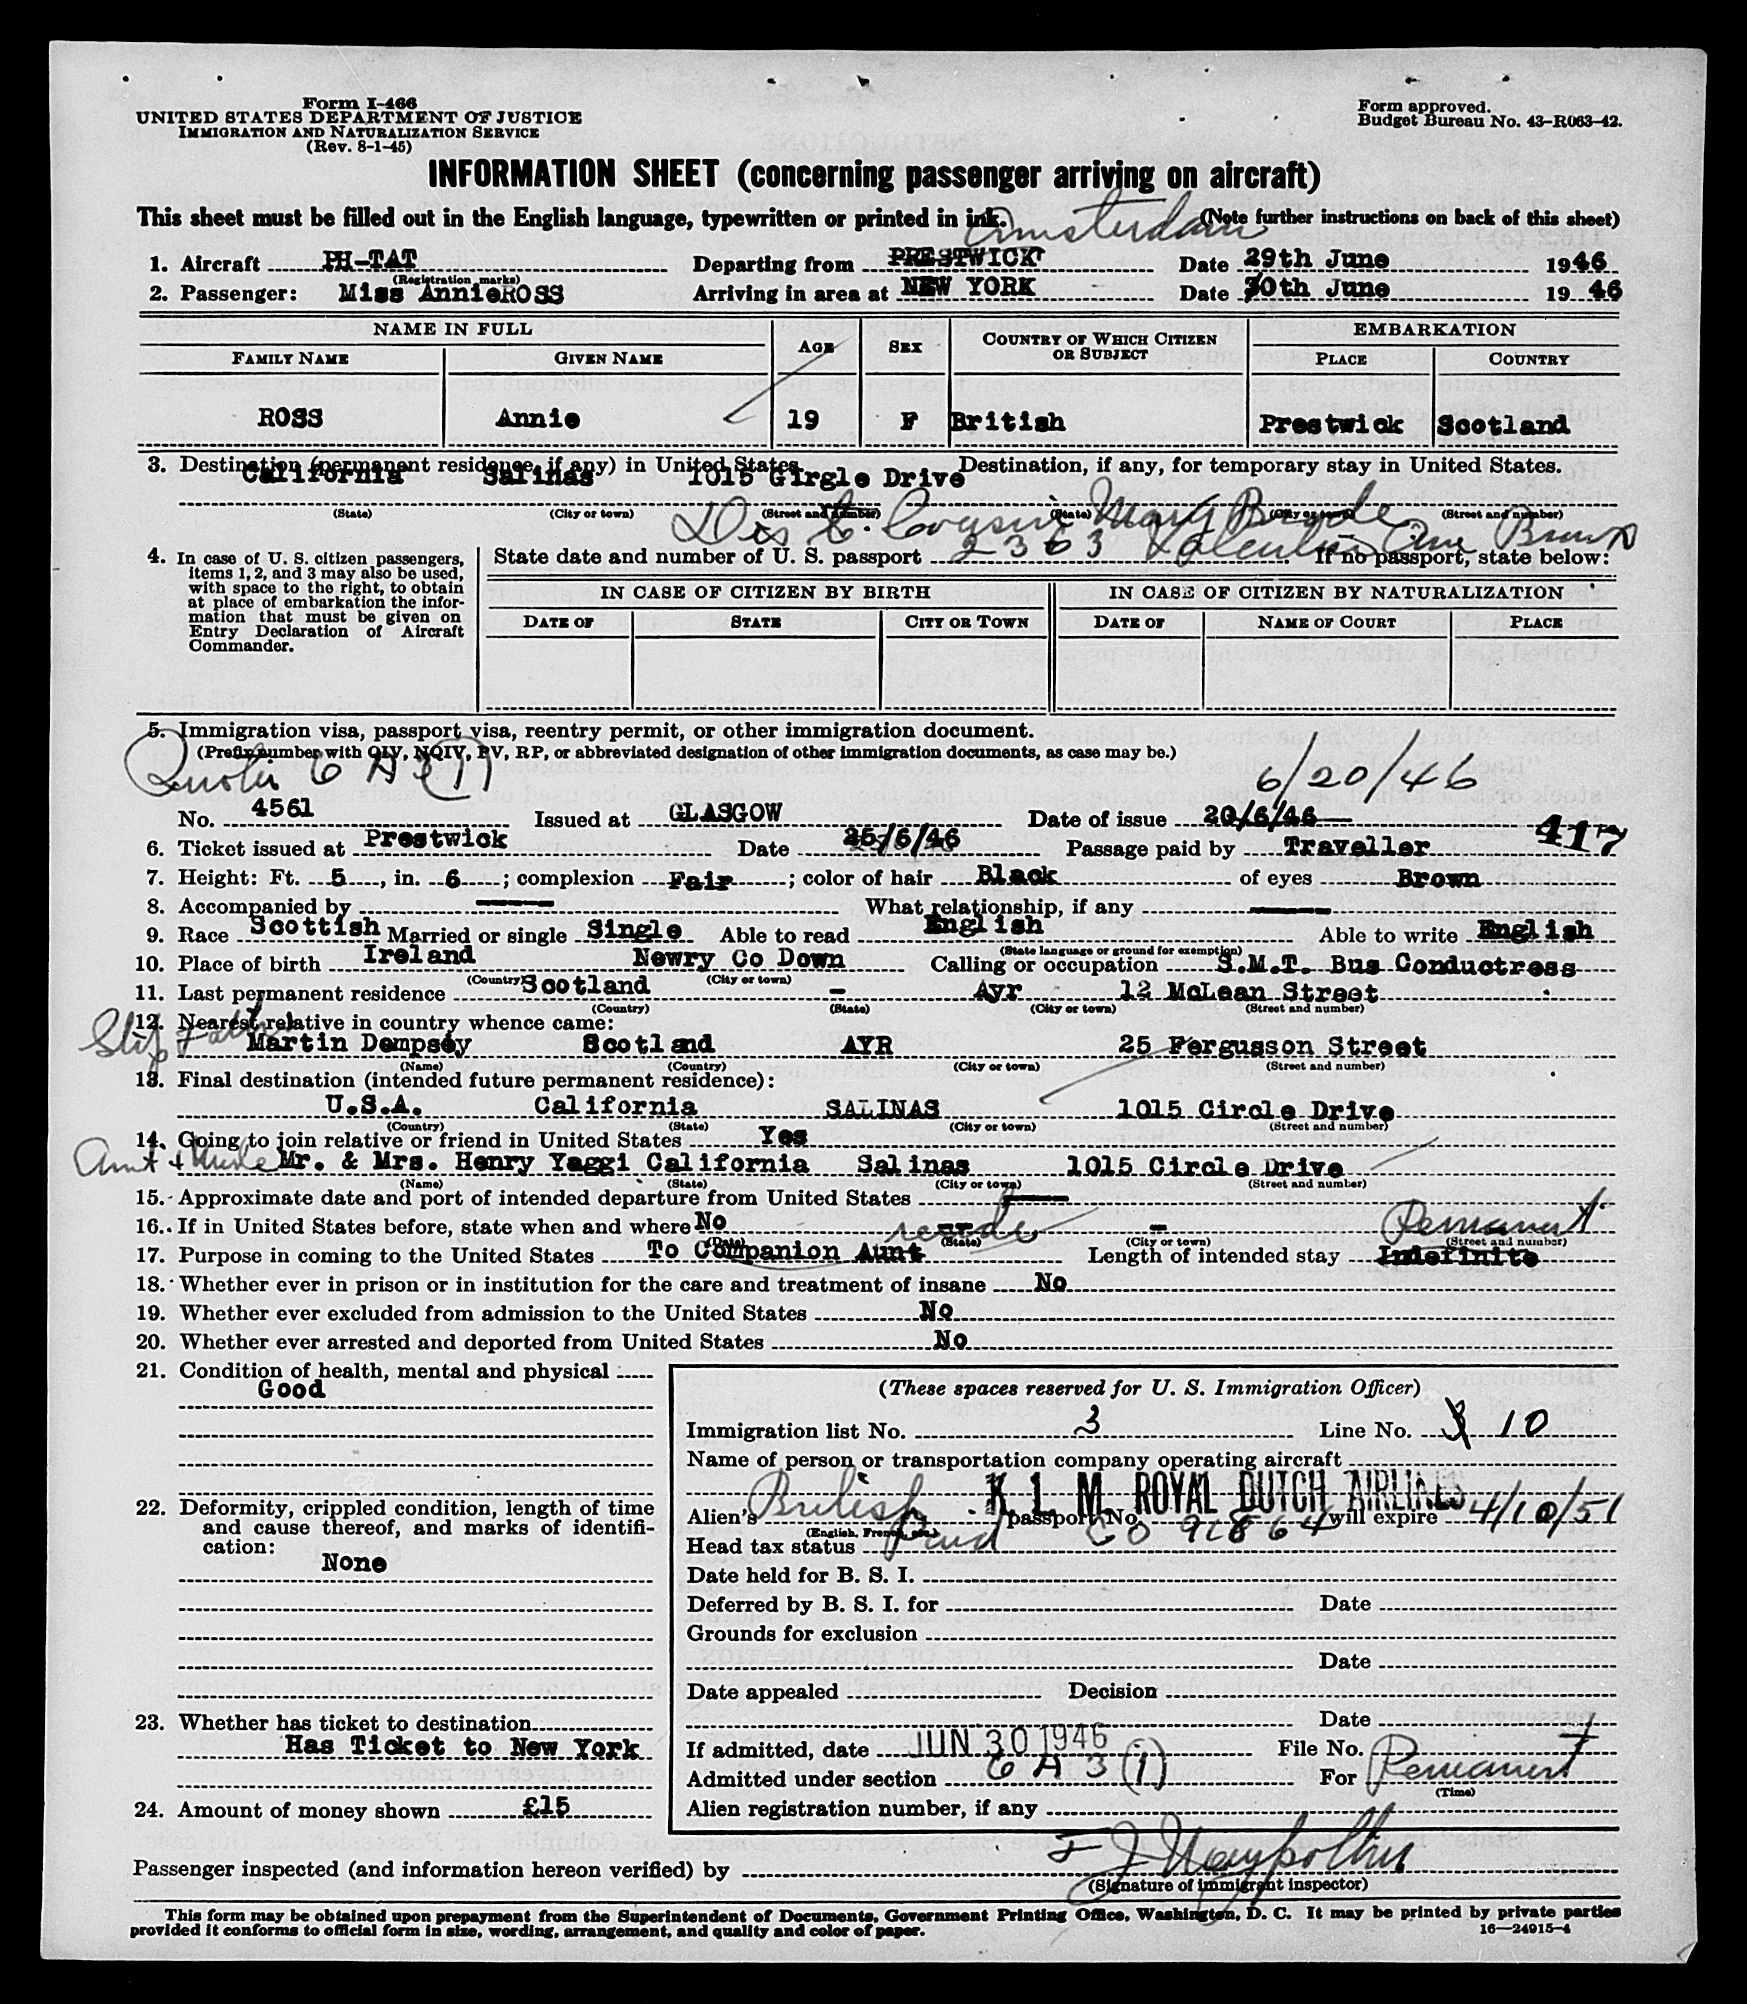 Form I-466
UNITED STATES DEPARTMENT OF JUSTICE
IMMIGRATION AND NATURALIZATION SERVICE
(Rev. 8-1-45)
Form approved.
Budget Bureau No. 43-R063-42.
INFORMATION SHEET (concerning passenger arriving on aircraft)
This sheet must be filled out in the English language, typewritten or printed in ink. (Note further instructions on back of this sheet)
Amsterdam
1. Aircraft PH-TAT Departing from PRESTWICK Date 29th June 1946
(Registration marks)
2. Passenger: Miss AnnieROSS Arriving in area at NEW YORK Date 30th June 1946
NAME IN FULL AGE SEX COUNTRY OF WHICH CITIZEN OR SUBJECT EMBARKATION
FAMILY NAME GIVEN NAME PLACE COUNTRY
ROSS Annie 19 F British Prestwick Scotland
3. Destination (permanent residence, if any) in United States. Destination, if any, for temporary stay in United States.
California Salinas 1015 Girgle Drive
(State) (City or town) (Street and number) (State) (City or town) (Street and number)
Cousin Mary
4. In case of U. S. citizen passengers, items 1, 2, and 3 may also be used, with space to the right, to obtain at place of embarkation the information that must be given on Entry Declaration of Aircraft Commander.
State date and number of U. S. passport 2363 If no passport, state below:
IN CASE OF CITIZEN BY BIRTH IN CASE OF CITIZEN BY NATURALIZATION
DATE OF STATE CITY OR TOWN DATE OF NAME OF COURT PLACE
5. Immigration visa, passport visa, reentry permit, or other immigration document.
(Prefix number with QIV, NQIV, PV, RP, or abbreviated designation of other immigration documents, as case may be.)
6 A 3 (1) 6/20/46
No. 4561 Issued at GLASGOW Date of issue 20/6/46
417
6. Ticket issued at Prestwick Date 25/6/46 Passage paid by Traveller
7. Height: Ft. 5, in. 6; complexion Fair; color of hair Black of eyes Brown
8. Accompanied by — What relationship, if any —
9. Race Scottish Married or single Single Able to read English Able to write English
(State language or ground for exemption)
10. Place of birth Ireland Newry Co Down Calling or occupation S.M.T. Bus Conductress
(Country) (City or town)
11. Last permanent residence Scotland - Ayr 12 McLean Street
(Country) (State) (City or town) (Street and number)
12. Nearest relative in country whence came:
Step Father Martin Dempsey Scotland AYR 25 Fergusson Street
(Name) (Country) (City or town) (Street and number)
13. Final destination (intended future permanent residence):
U.S.A. California SALINAS 1015 Circle Drive
(Country) (State) (City or town) (Street and number)
14. Going to join relative or friend in United States Yes
Aunt & Uncle Mr. & Mrs. Henry Yaggi California Salinas 1015 Circle Drive
(Name) (State) (City or town) (Street and number)
15. Approximate date and port of intended departure from United States —
16. If in United States before, state when and where No - -
(Date) (State) (City or town) (Street and number)
reside Permanent
17. Purpose in coming to the United States To Companion Aunt Length of intended stay Indefinite
18. Whether ever in prison or in institution for the care and treatment of insane No
19. Whether ever excluded from admission to the United States No
20. Whether ever arrested and deported from United States No
21. Condition of health, mental and physical
Good
22. Deformity, crippled condition, length of time and cause thereof, and marks of identification:
None
23. Whether has ticket to destination
Has Ticket to New York
24. Amount of money shown £15
(These spaces reserved for U. S. Immigration Officer)
Immigration list No. 3 Line No. 10
Name of person or transportation company operating aircraft
K. L. M. ROYAL DUTCH AIRLINES
Alien's British passport No. CO 92864 will expire 4/10/51
(English, French, etc.)
Head tax status Paid
Date held for B. S. I.
Deferred by B. S. I. for Date
Grounds for exclusion
Date
Date appealed Decision
Date
If admitted, date JUN 30 1946 File No.
Admitted under section 6 A 3 (1) For Permanent
(Time)
Alien registration number, if any
Passenger inspected (and information hereon verified) by
(Signature of immigrant inspector)
This form may be obtained upon prepayment from the Superintendent of Documents, Government Printing Office, Washington, D. C. It may be printed by private parties
provided it conforms to official form in size, wording, arrangement, and quality and color of paper. 16—24915-4